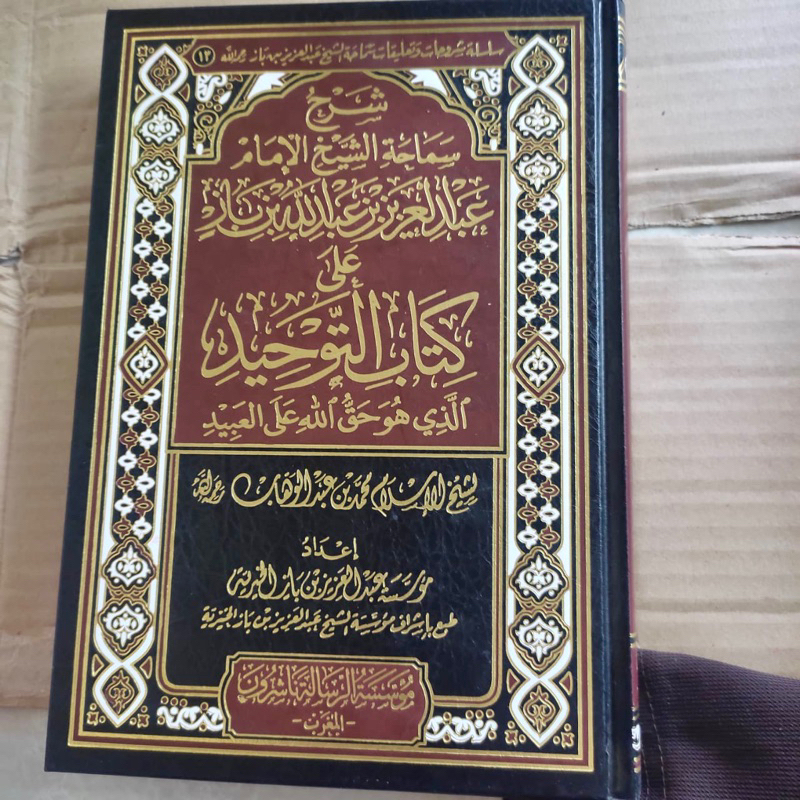 سلسلة شروحات وتعليقات سماحة الشيخ عبد العزيز بن باز رحمه الله ١٣
شَرْحُ
سَمَاحَةِ الشَّيْخِ الإِمَامِ
عَبْدِ الْعَزِيزِ بْنِ عَبْدِ اللهِ بْنِ بَازٍ
عَلَى
كِتَابِ التَّوْحِيدِ
الَّذِي هُوَ حَقُّ اللهِ عَلَى العَبِيدِ
لشيخ الإسلام محمد بن عبد الوهاب رحمه الله
إعْدَادُ
مؤسسة عبد العزيز بن باز الخيرية
طبع بإشراف مؤسسة الشيخ عبد العزيز بن باز الخيرية
مؤسسة الرسالة ناشرون
-المغرب-